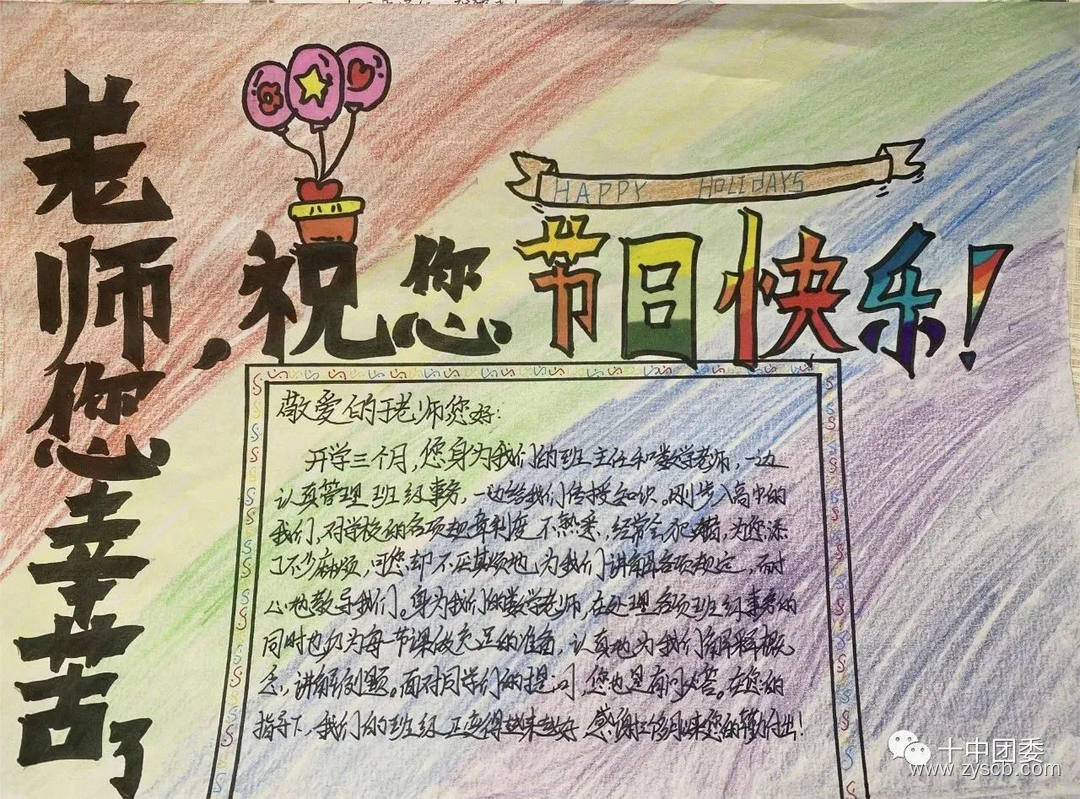 老师您辛苦了
，祝您节日快乐！
HAPPY HOLIDAYS
敬爱的于老师您好：
开学三个月，您身为我们的班主任和数学老师，一边
认真管理班级事务，一边给我们传授知识。刚步入高中的
我们，对学校的各项规章制度不熟悉，经常会犯错，为您添
了不少麻烦，可您却不厌其烦地为我们讲解各项规定，耐
心地教导我们。身为我们的数学老师，在处理各项班级事务的
同时也仍为每节课做充足的准备，认真地为我们解释概
念，讲解例题。面对同学们的提问，您也是有问必答。在您的
指导下，我们的班级正变得越来越好 感谢 您的 付出！
十中团委
www.zyscb.com